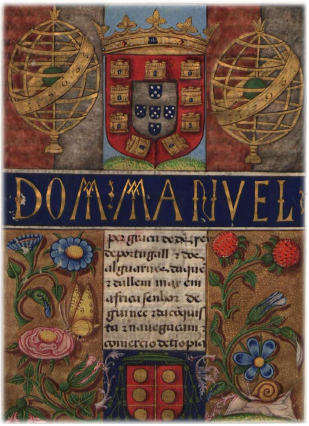 DOM:MANVEL
por graça de
de portugall & dos
alguarues, daque
& dallem mar em
africa senhor de
guinee & da cõquis
ta & nauegacam
comercio detiopia